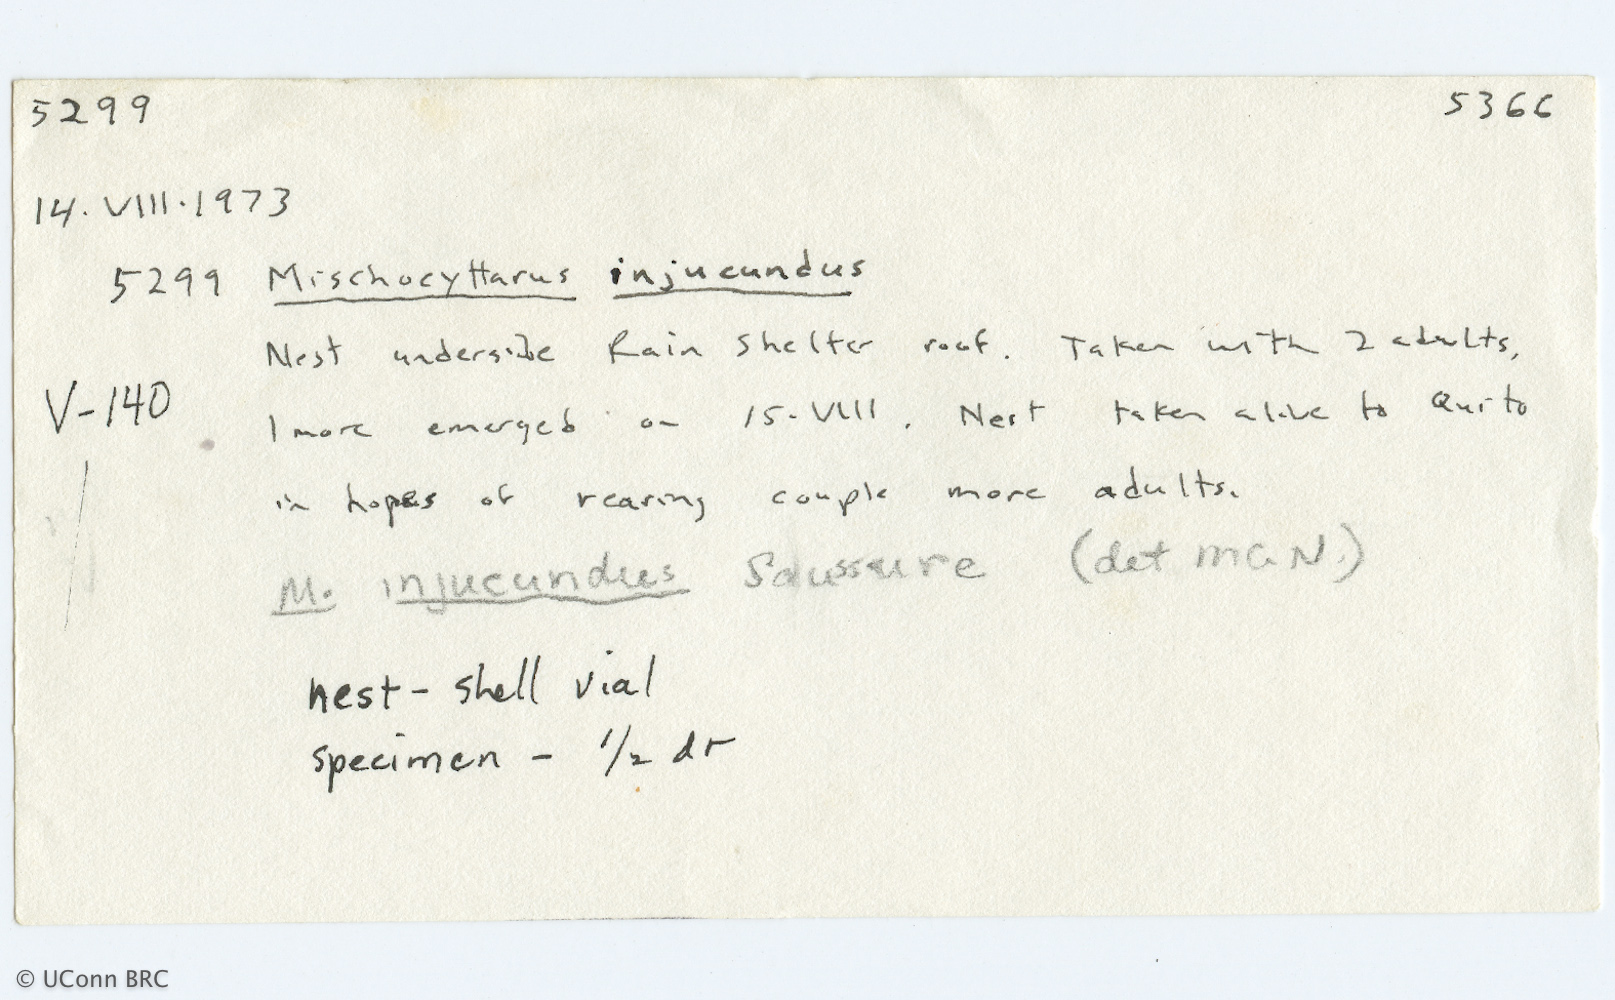 5299 5366
14.VIII.1973
5299 Mischocyttarus injucundus
Nest underside Rain Shelter roof. Taken with 2 adults,
V-140
1 more emerged on 15-VIII. Nest taken alive to Quito
in hopes of rearing couple more adults.
M. injucundus Saussure (det MGN.)
nest - shell vial
specimen - 1/2 dr
© UConn BRC